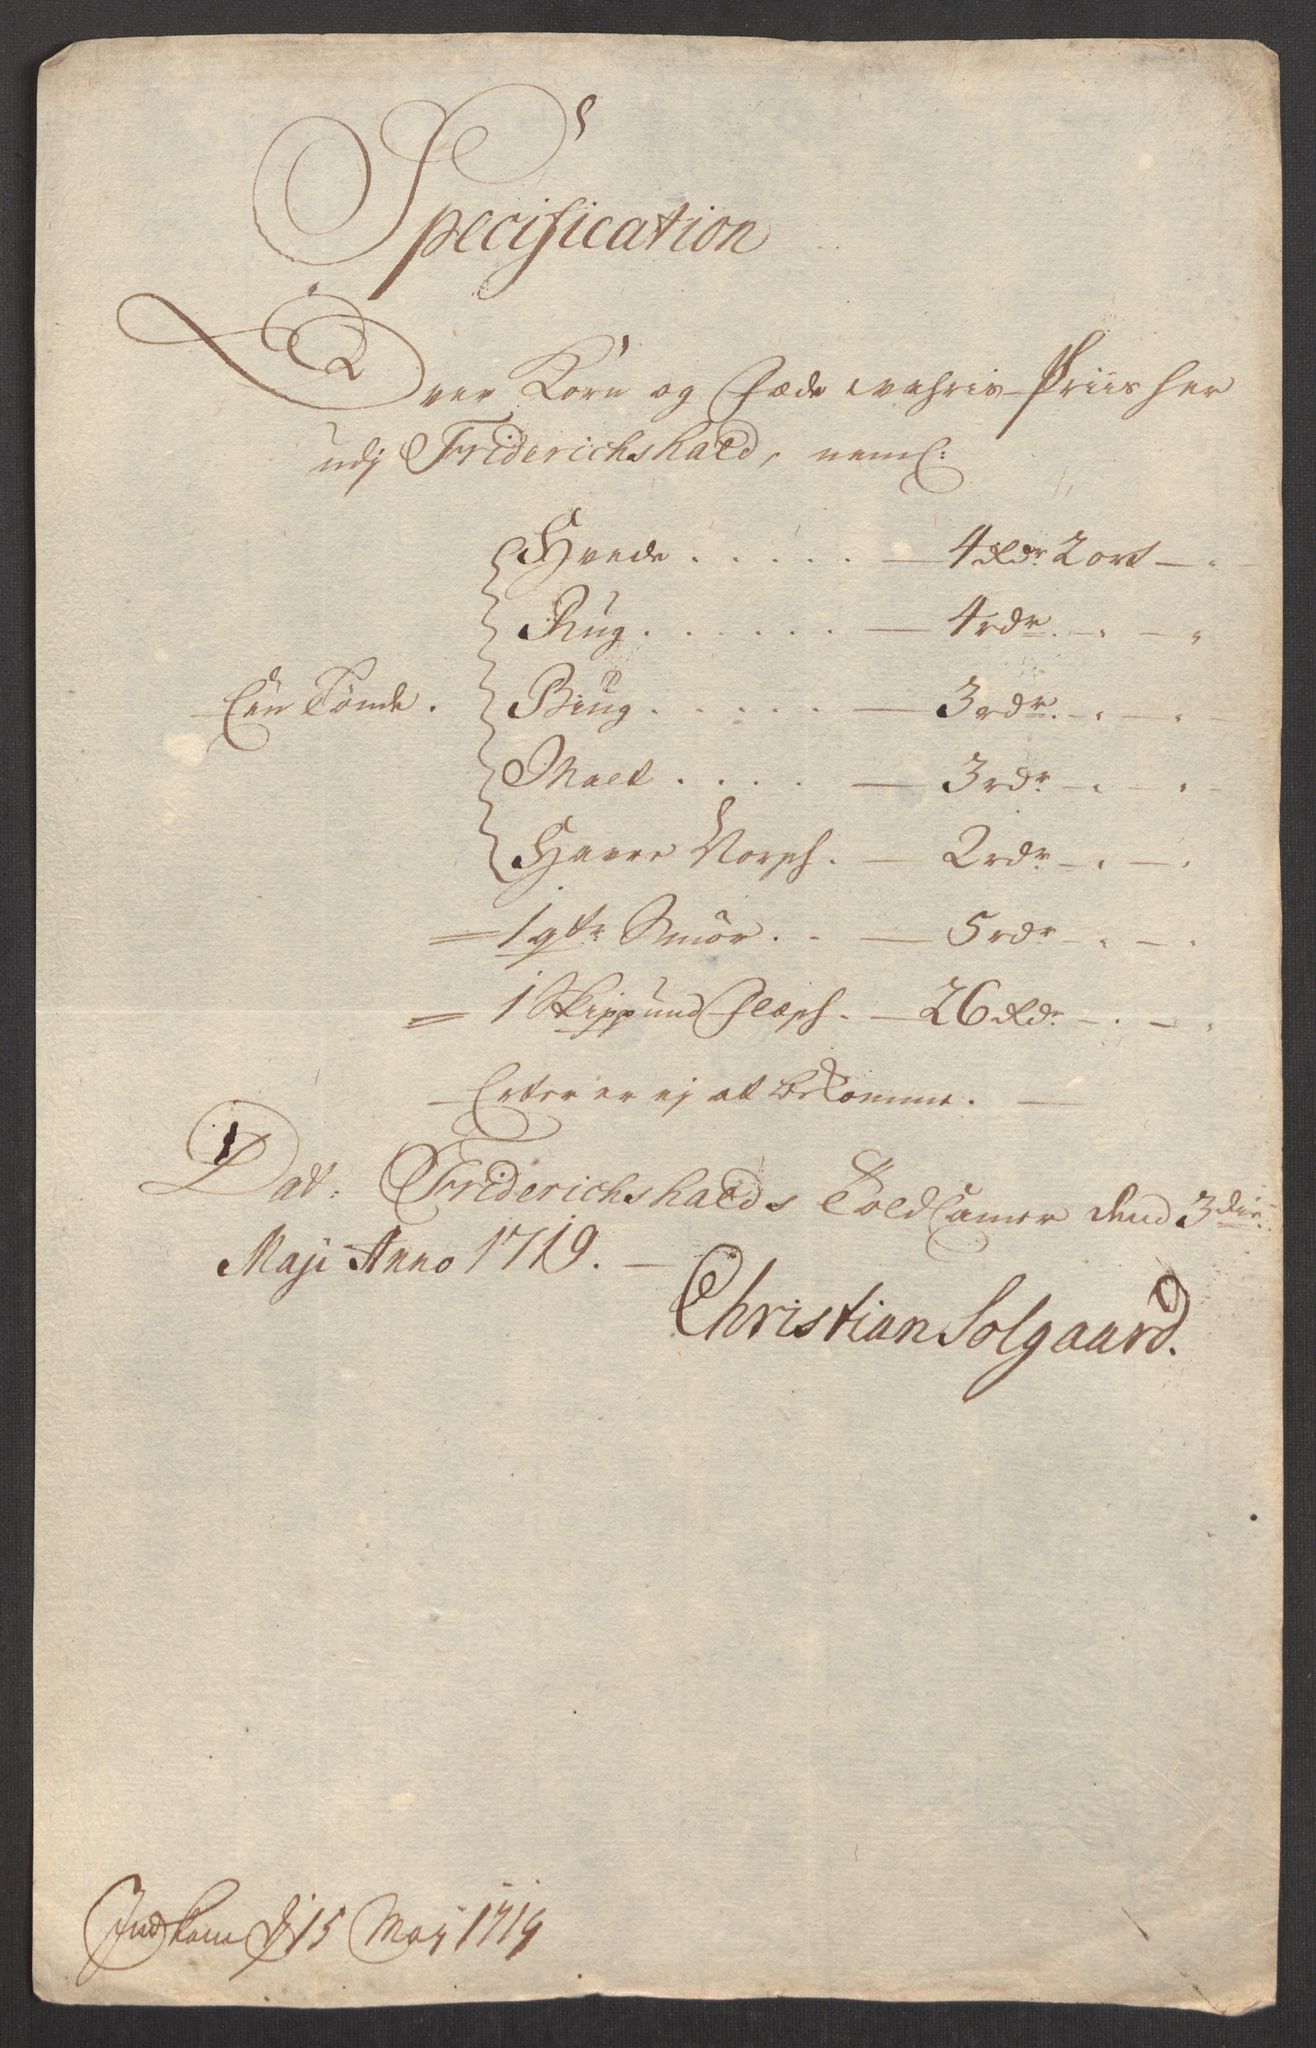 Specification
Over Korn og Fæde wahris Priis her
udj Friderichshald, neml:
Hvede . . . . . — 4 Rdr 2 ort — "
Rug . . . . . . — 4 rdr. — " — "
Een Tønde . Biug . . . . . — 3 rdr. — " — "
Malt . . . . — 3 rdr — " — "
Havre Norsch . — 2 rdr — " — "
= 1 qtr Smör . . — 5 rdr — " — "
= 1 Skippund Flesch . — 26 Rdr — " — "
— Erter er ej at bekomme . —
Dat: Friderichshalds Told Camer dend 3die
Maji Anno 1719. —
Christian Solgaard.
Indkom d 15 Maj 1719